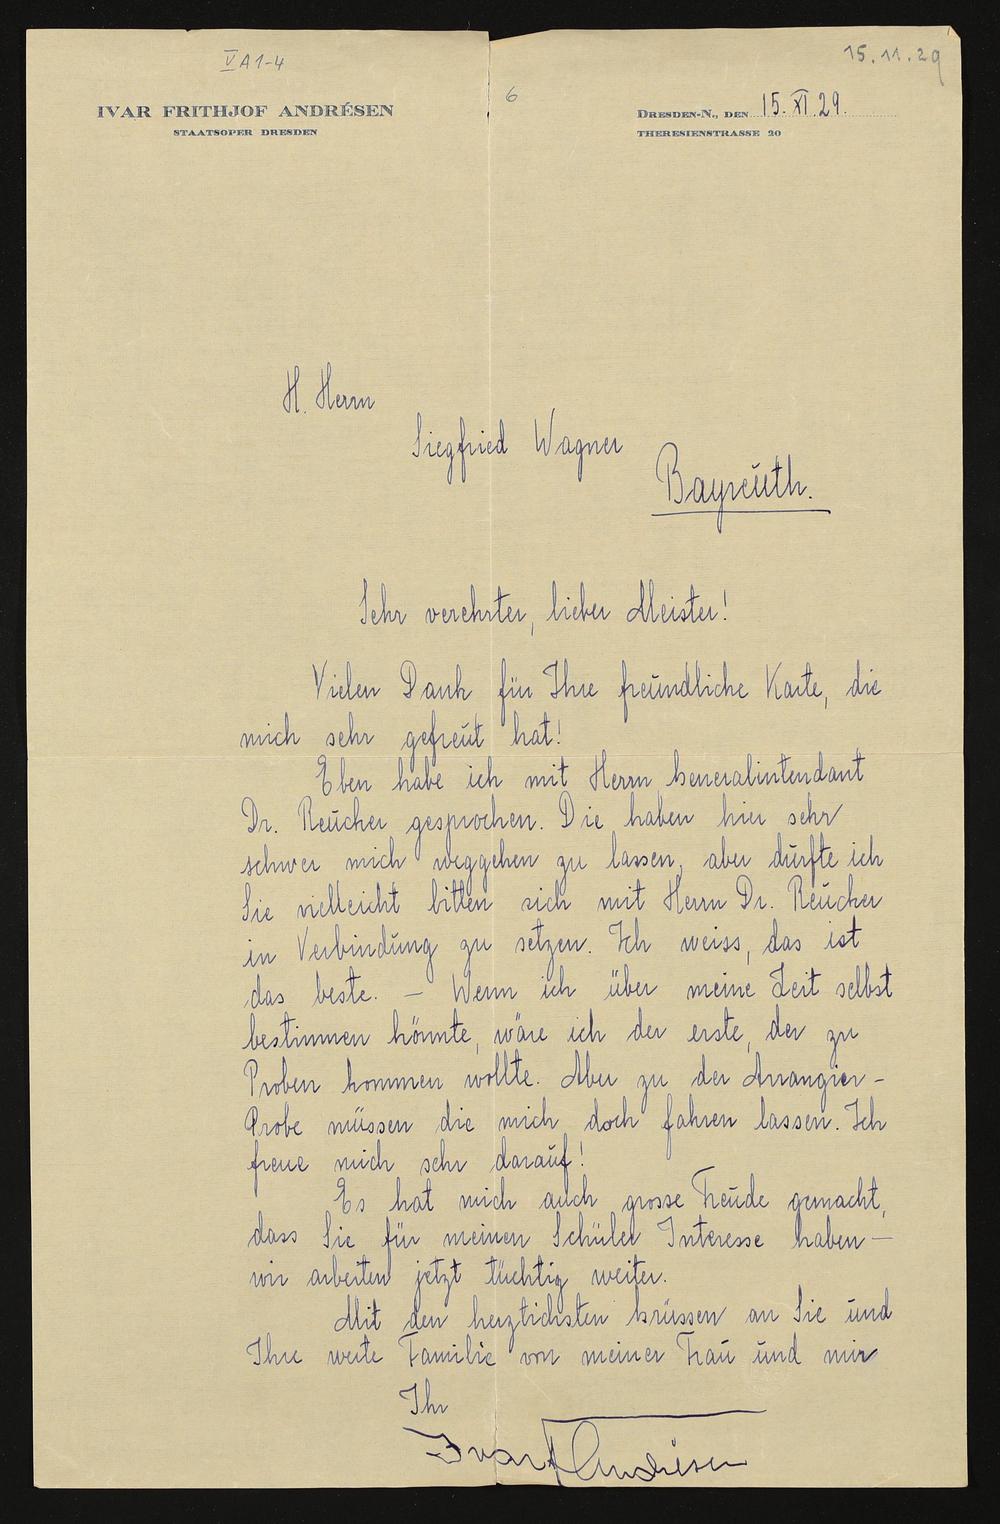 V A 1-4
15.11.29
6
IVAR FRITHJOF ANDRÉSEN
STAATSOPER DRESDEN
DRESDEN-N., DEN 15. XI. 29.
THERESIENSTRASSE 20
H. Herrn
Siegfried Wagner
Bayreuth.
Sehr verehrter, lieber Meister!
Vielen Dank für Ihre freundliche Karte, die
mich sehr gefreut hat!
Eben habe ich mit Herrn Generalintendant
Dr. Reucker gesprochen. Die haben hier sehr
schwer mich weggehen zu lassen, aber dürfte ich
Sie vielleicht bitten sich mit Herrn Dr. Reucker
in Verbindung zu setzen. Ich weiss, das ist
das beste. – Wenn ich über meine Zeit selbst
bestimmen könnte, wäre ich der erste, der zu
Proben kommen wollte. Aber zu der Arrangier-
Probe müssen die mich doch fahren lassen. Ich
freue mich sehr darauf!
Es hat mich auch grosse Freude gemacht,
dass Sie für meinen Schüler Interesse haben –
wir arbeiten jetzt tüchtig weiter.
Mit den herzlichsten Grüssen an Sie und
Ihre werte Familie von meiner Frau und mir
Ihr
Ivar F Andrésen